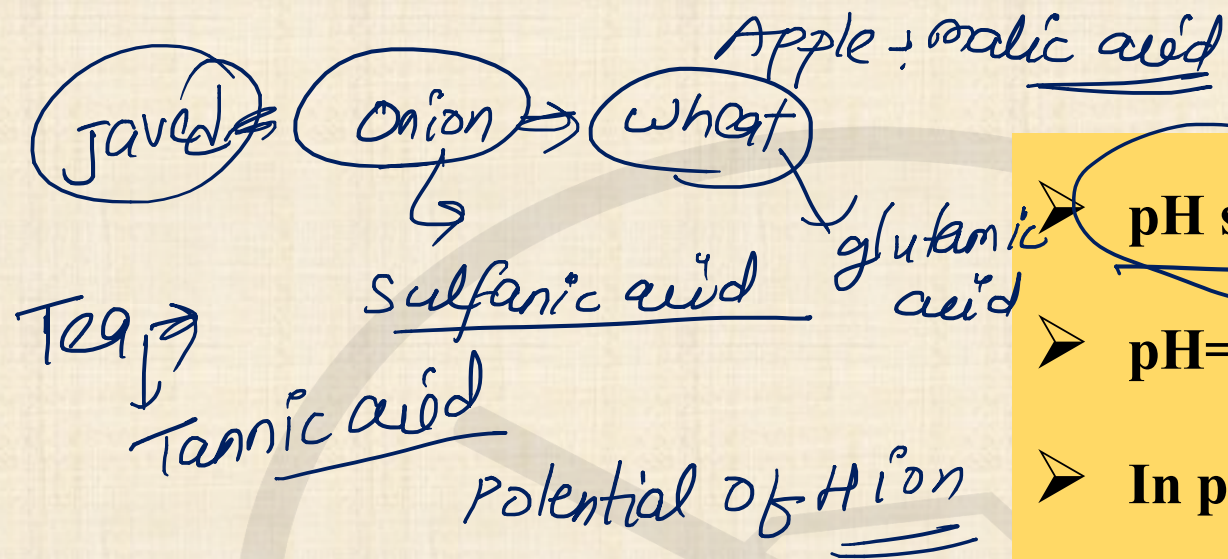 Apple → malic acid
Javed Onion → Wheat
glutamic
acid
sulfanic acid
Tea →
Tannic acid
Potential of H ion
➤ pH s
➤ pH=
➤ In p